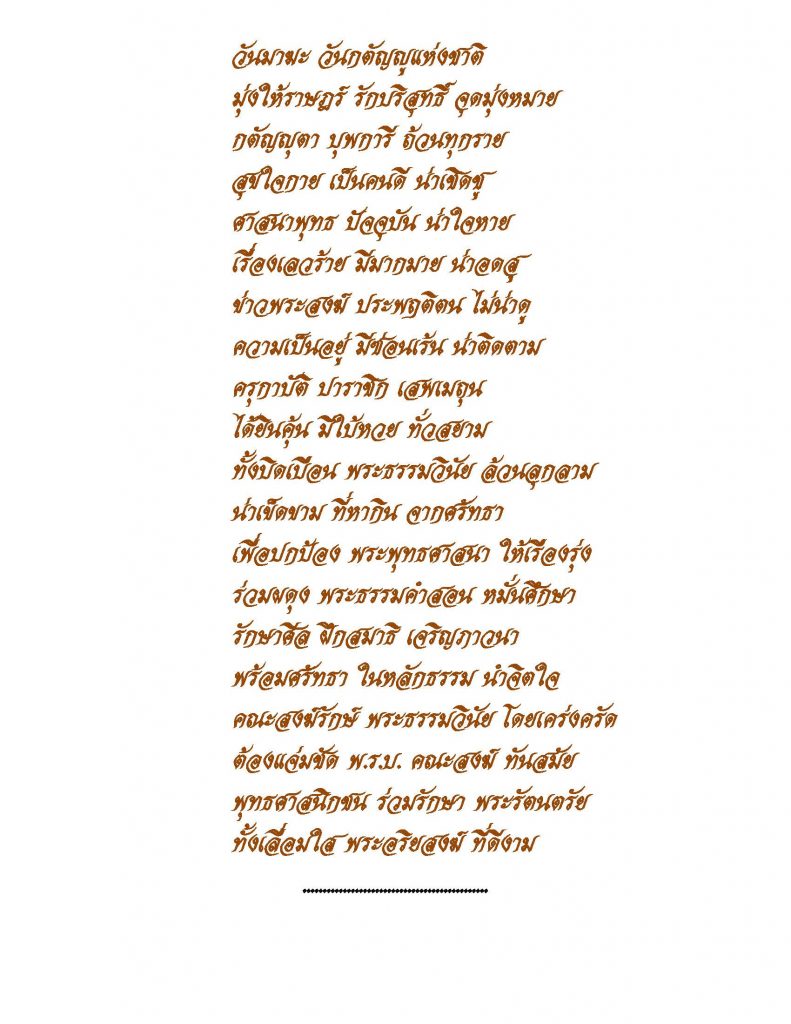 วันมาฆะ วันกตัญญูแห่งชาติ
มุ่งให้ราษฎร์ รักบริสุทธิ์ จุดมุ่งหมาย
กตัญญุตา บุพการี ถ้วนทุกราย
สุขใจกาย เป็นคนดี น่าเชิดชู
ศาสนาพุทธ ปัจจุบัน น่าใจหาย
เรื่องเลวร้าย มีมากมาย น่าอดสู
ข่าวพระสงฆ์ ประพฤติตน ไม่น่าดู
ความเป็นอยู่ มีซ่อนเร้น น่าติดตาม
ครุกาบัติ ปาราชิก เสพเมถุน
ได้ยินคุ้น มีใบ้หวย ทั่วสยาม
ทั้งบิดเบือน พระธรรมวินัย ล้วนลุกลาม
น่าเข็ดขาม ที่หากิน จากศรัทธา
เพื่อปกป้อง พระพุทธศาสนา ให้เรืองรุ่ง
ร่วมผดุง พระธรรมคำสอน หมั่นศึกษา
รักษาศีล ฝึกสมาธิ เจริญภาวนา
พร้อมศรัทธา ในหลักธรรม นำจิตใจ
คณะสงฆ์รักษ์ พระธรรมวินัย โดยเคร่งครัด
ต้องแจ่มชัด พ.ร.บ. คณะสงฆ์ ทันสมัย
พุทธศาสนิกชน ร่วมรักษา พระรัตนตรัย
ทั้งเลื่อมใส พระอริยสงฆ์ ที่ดีงาม